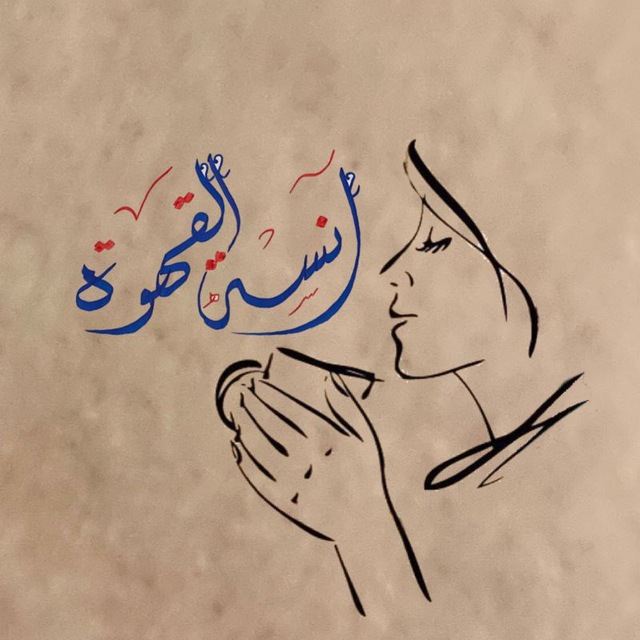 آنسة القهوة